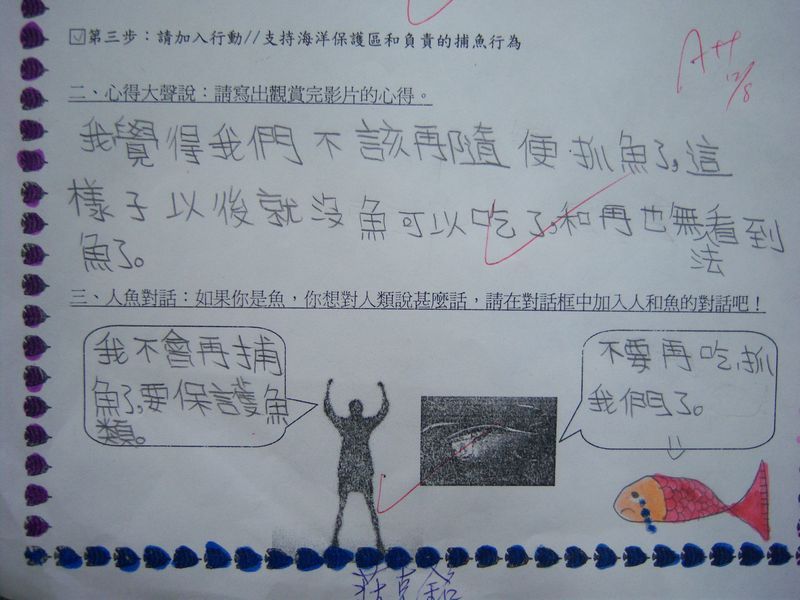 ☑第三步：請加入行動//支持海洋保護區和負責的捕魚行為
A++
12/8
二、心得大聲說：請寫出觀賞完影片的心得。
我覺得我們不該再隨便抓魚了,這
樣子以後就沒魚可以吃了,和再也無法看到
魚了。
三、人魚對話：如果你是魚，你想對人類說甚麼話，請在對話框中加入人和魚的對話吧！
我不會再捕
魚了,要保護魚
類。
不要再吃,抓
我們了。
莊克銘